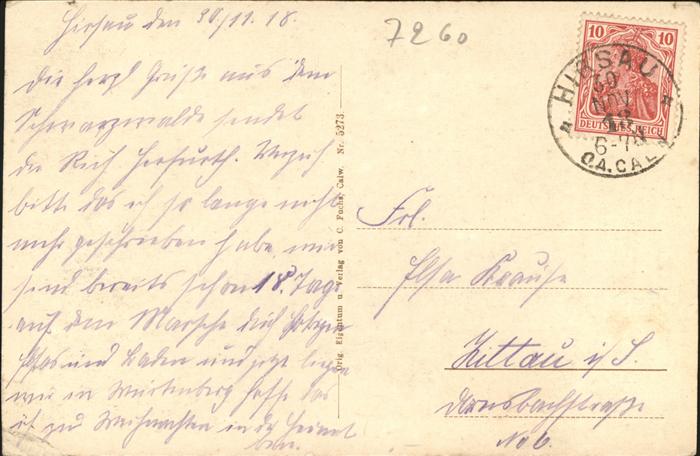 Hirsau den 30/11.18.
Die herzl Grüße aus dem
Schwarzwalde sendet
die Rich Herfurth. Verzeih
bitte das ich so lange nicht
mehr geschrieben habe, wir
sind bereits schon 18. Tage
auf dem Marsche durch
Elsas und Baden und jetzt liegen
wir in Würtenberg hoffe das
ich zu Weihnachten in der Heimat
bin.
7260
10 10
DEUTSCHES REICH
HIRSAU
30
NOV
18
6-7N
O.A. CALW
Orig. Eigentum u. Verlag von C. Fuchs, Calw. Nr. 5273.
Frl.
Elsa Krause
Zittau i/S.
No 6.